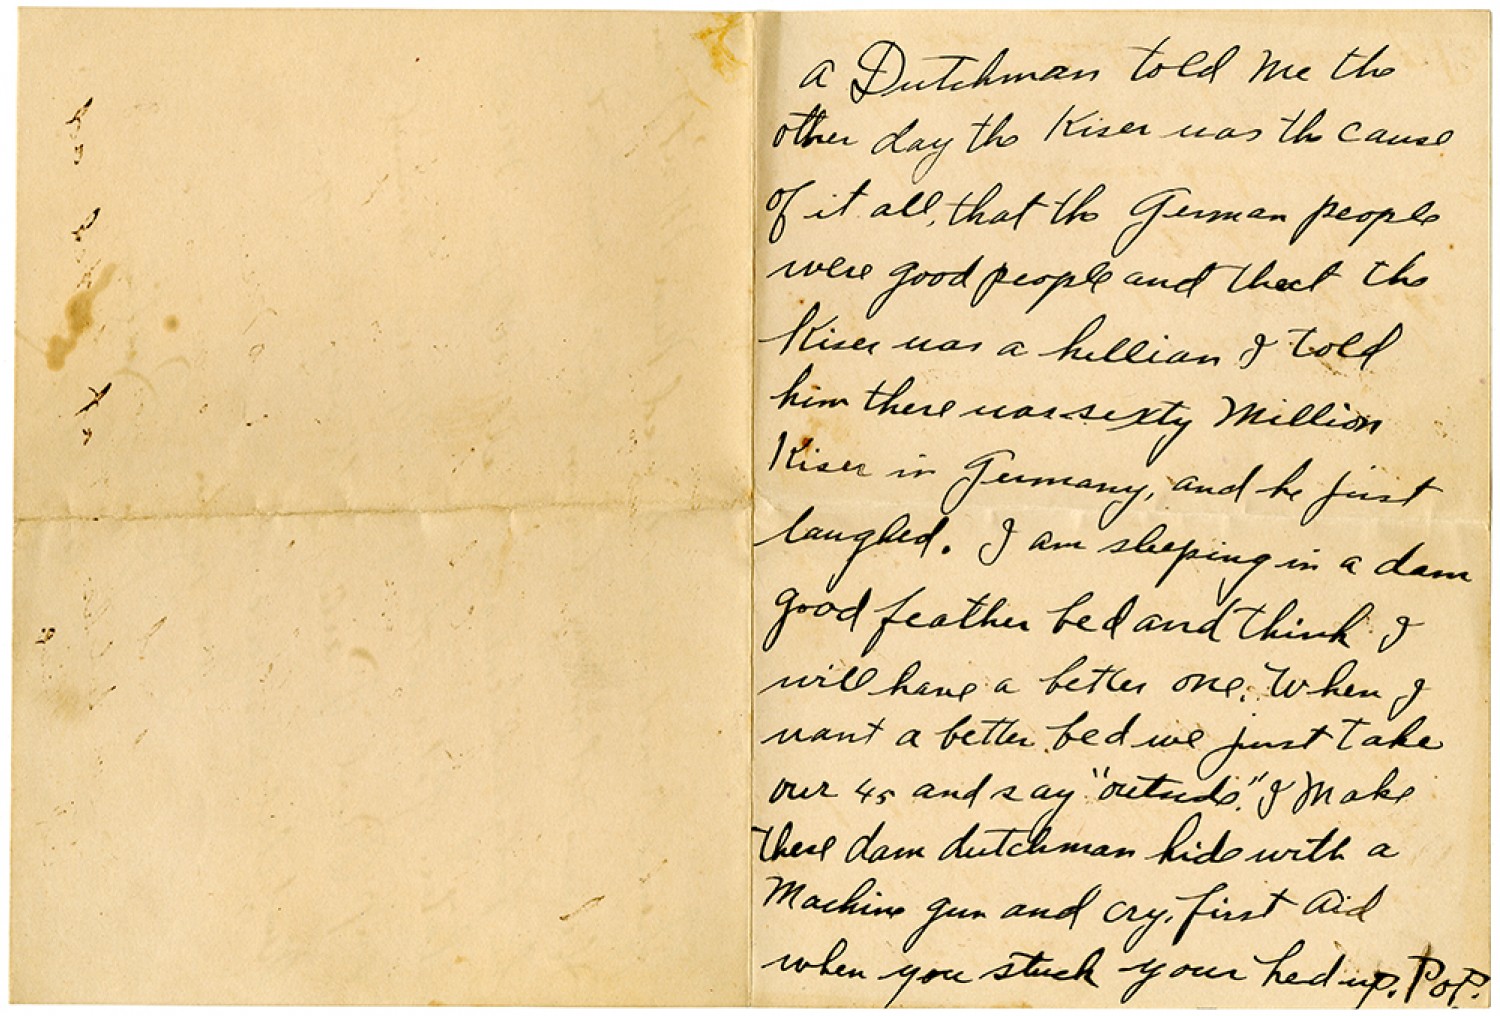 a Dutchman told me the
other day the Kiser was the cause
of it all, that the German people
were good people and that the
Kiser was a hellian I told
him there was sexty Million
Kiser in Germany, and he just
laughed. I am sleeping in a dam
good feather bed and think I
will have a better one. When I
want a better bed we just take
our 45 and say "outside." I Make
these dam dutchman hide with a
Machine gun and cry, first Aid
when you stuck your hed up. Pop.